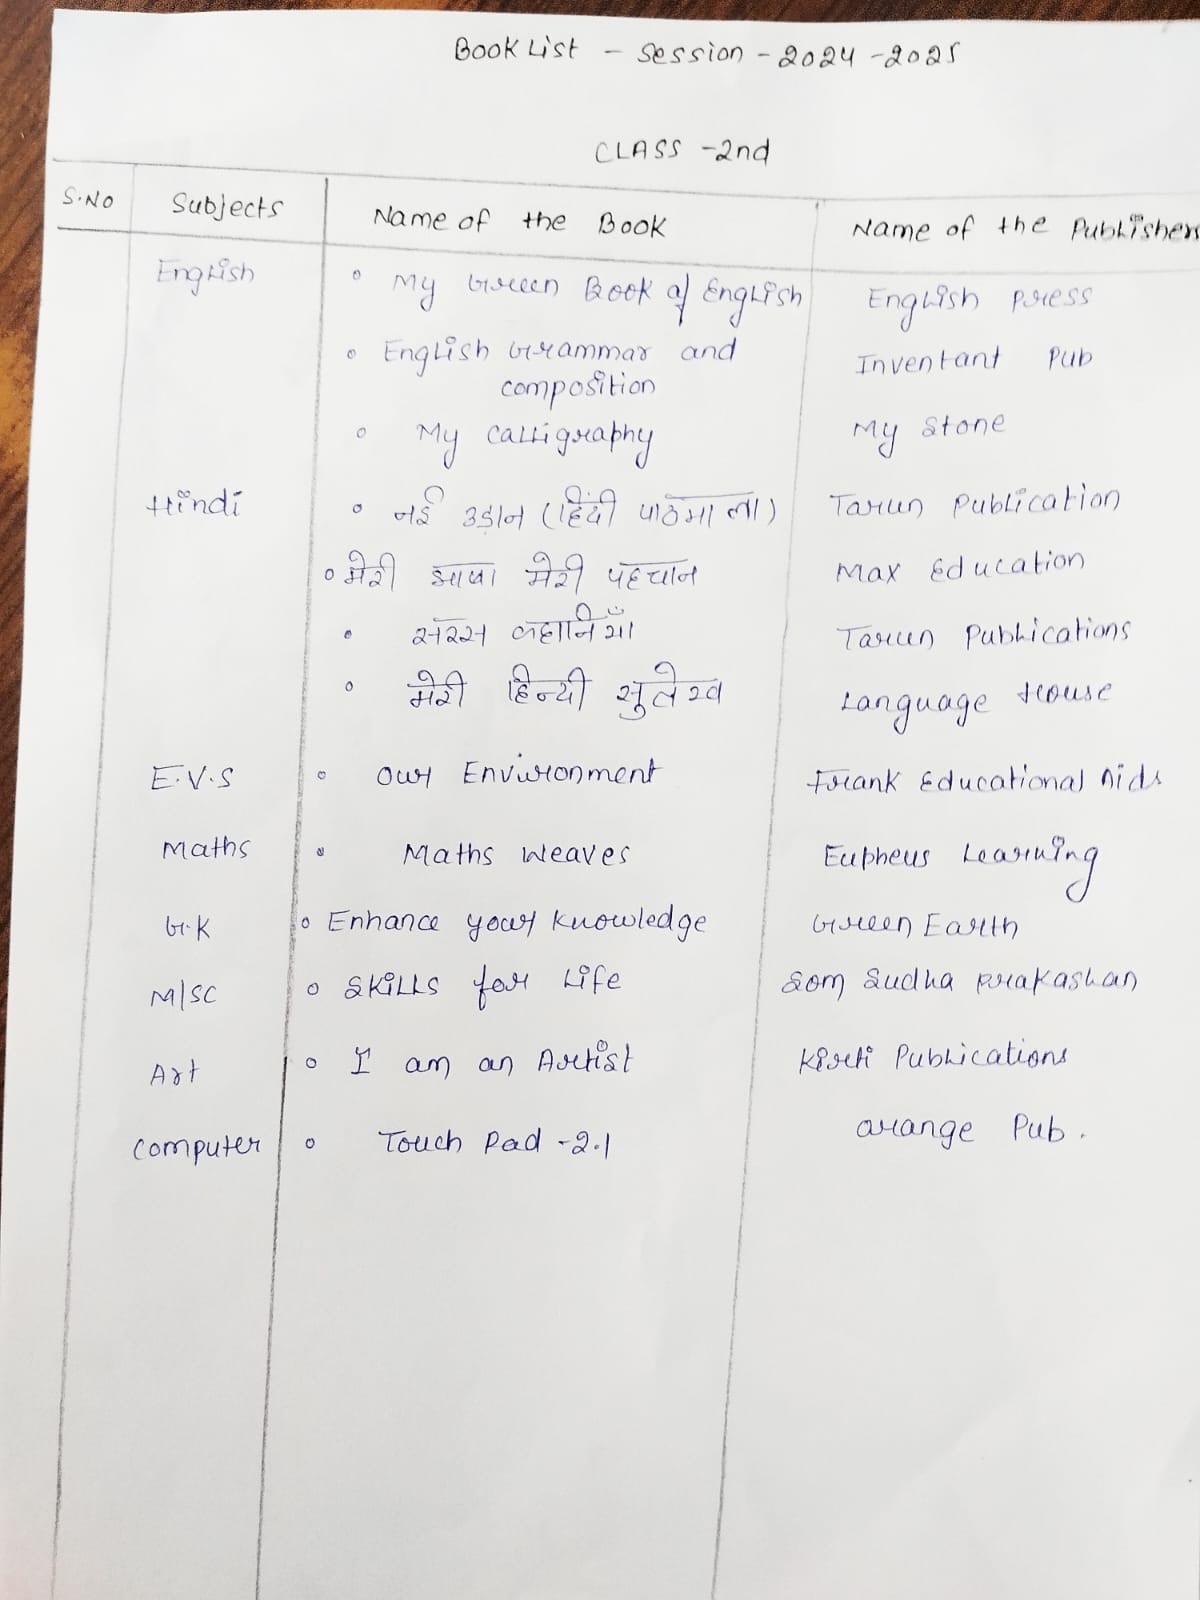 Book List - Session - 2024 - 2025
CLASS - 2nd
S.No Subjects Name of the Book Name of the Publishers
English • My Green Book of English English Press
• English Grammar and Inventant Pub
composition
• My Calligraphy My Stone
Hindi • नई उड़ान (हिंदी पाठमाला) Tarun Publication
• मेरी भाषा मेरी पहचान Max Education
• सरस कहानियाँ Tarun Publications
• मेरी हिन्दी सुलेख Language House
E.V.S • Our Environment Frank Educational Aids
Maths • Maths Weaves Eupheus Learning
G.K • Enhance your Knowledge Green Earth
M/SC • Skills for Life Som Sudha Prakashan
Art • I am an Artist Kirti Publications
Computer • Touch Pad - 2.1 Orange Pub.